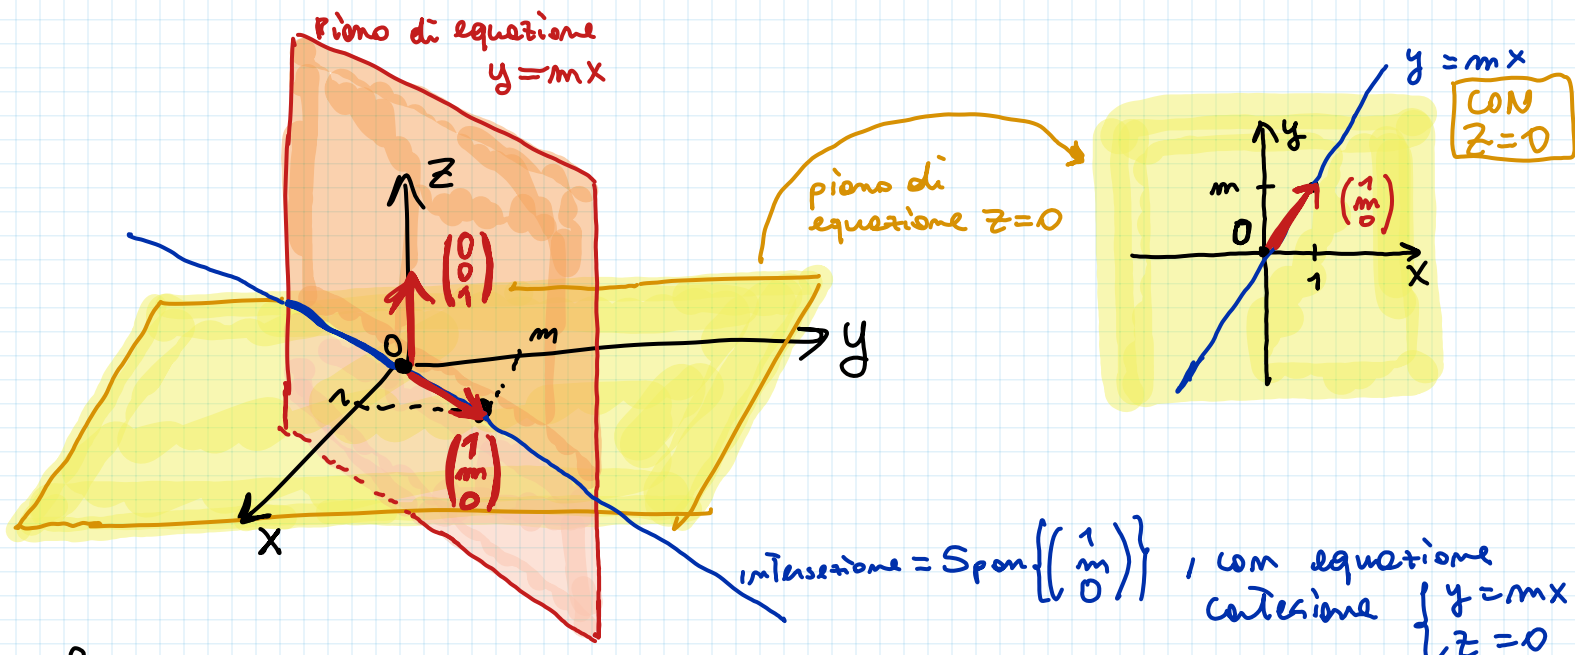 Piano di equazione
y = mx
z
(0
0
1)
0
m
y
1
(1
m
0)
x
piano di
equazione z=0
y = mx
CON
Z=0
y
m
(1
m
0)
0
1
x
intersezione = Span{(1
m
0)}, con equazione
cartesiana { y = mx
z = 0